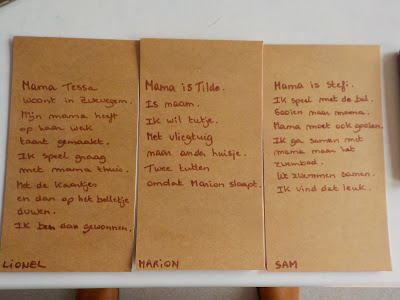 Mama Tessa
woont in Zwevegem.
Mijn mama heeft
op haar werk
taart gemaakt.
Ik speel graag
met mama thuis.
Met de kaartjes
en dan op het belletje
duwen.
Ik ben dan gewonnen.
LIONEL
Mama is Tilde.
Is mama.
Ik wil tutje.
Met vliegtuig
naar ander huisje.
Twee tutten
omdat Marion slaapt.
MARION
Mama is Stefi.
Ik speel met de bal.
Gooien naar mama.
Mama moet ook gooien.
Ik ga samen met
mama naar het
zwembad.
We zwemmen samen.
Ik vind dat leuk.
SAM